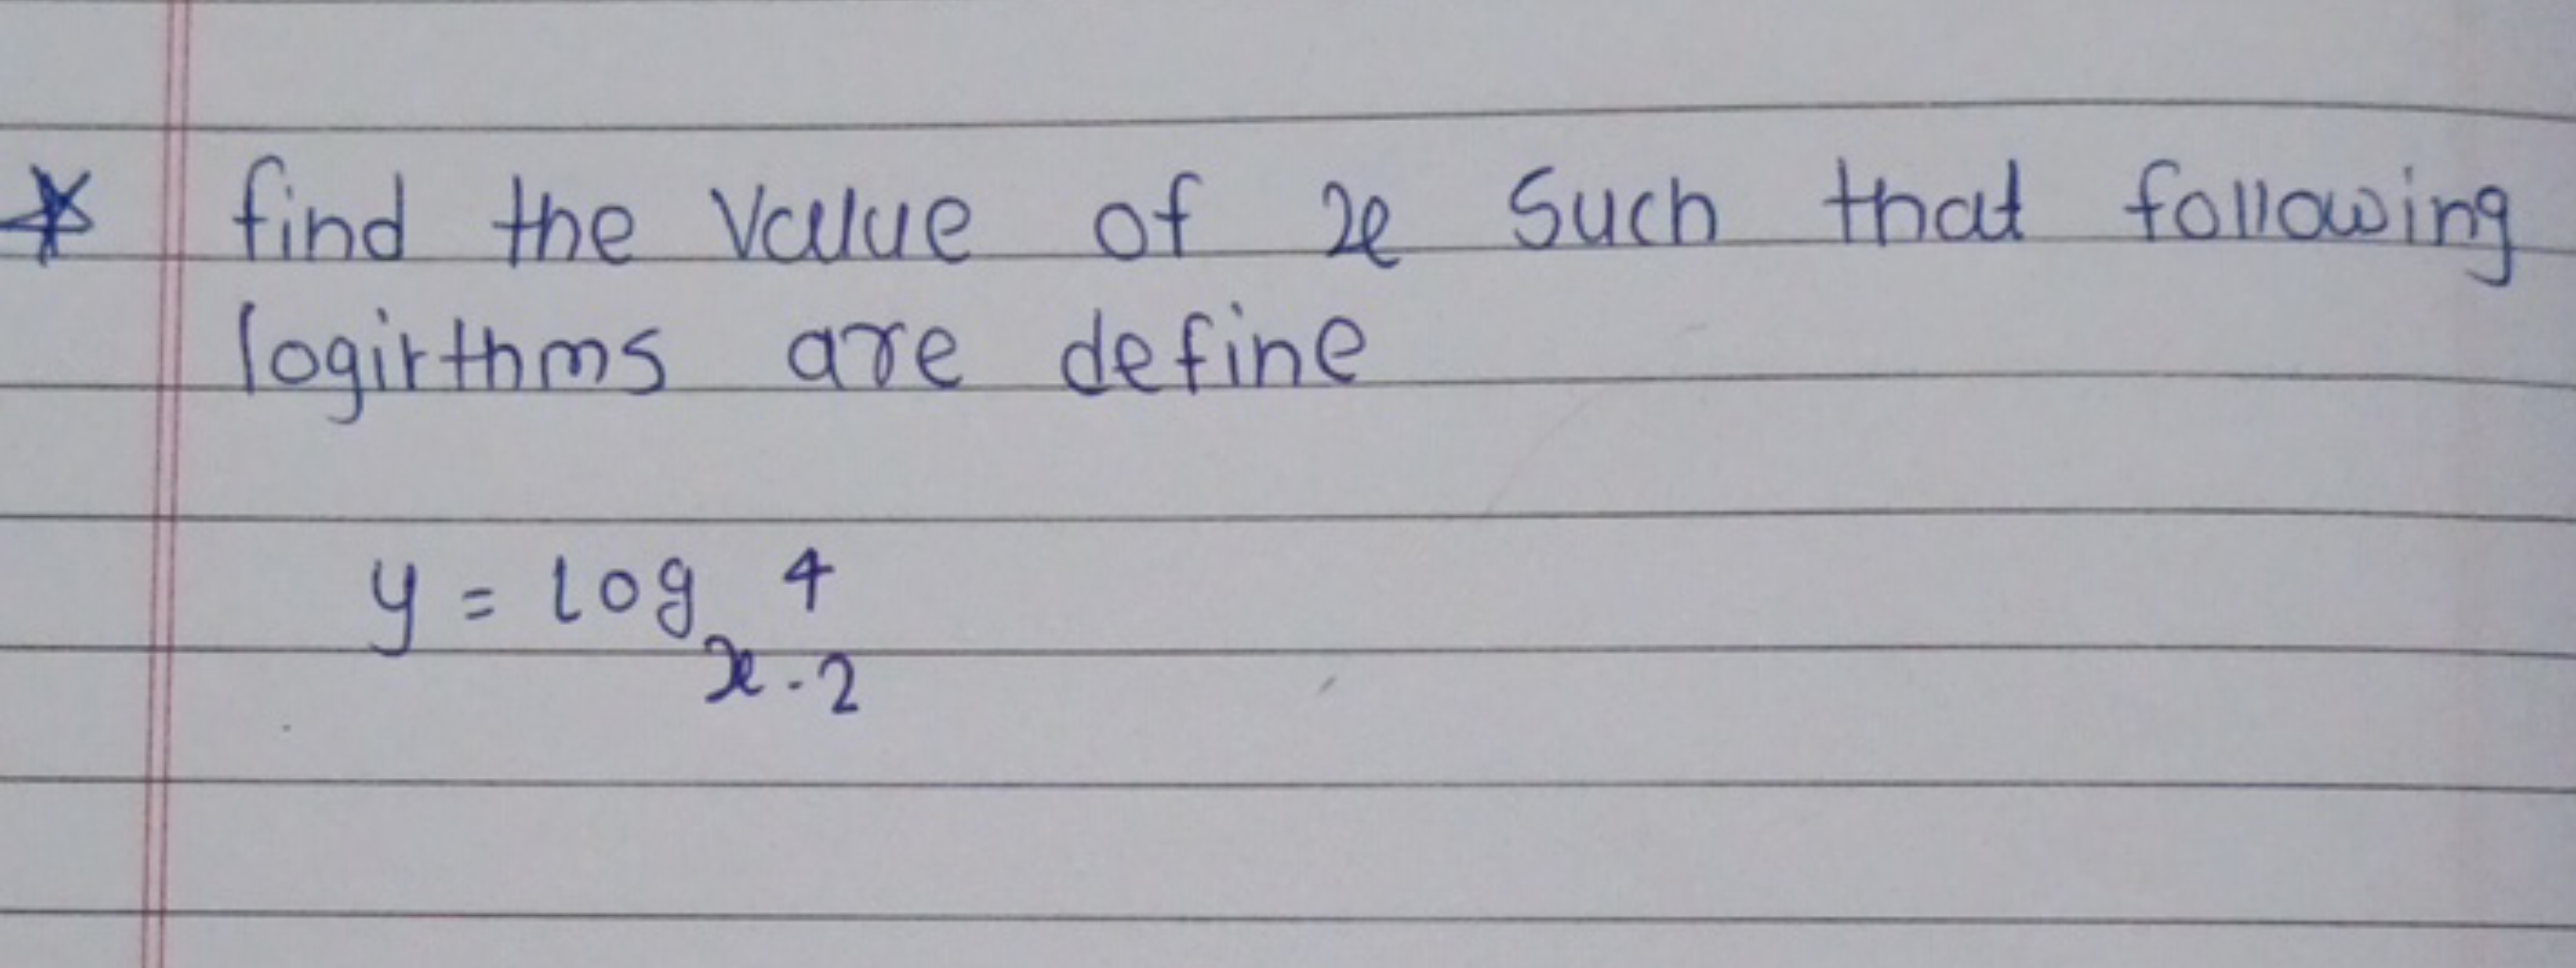 * find the value of x such that following
logirthms are define
y = log 4
x-2